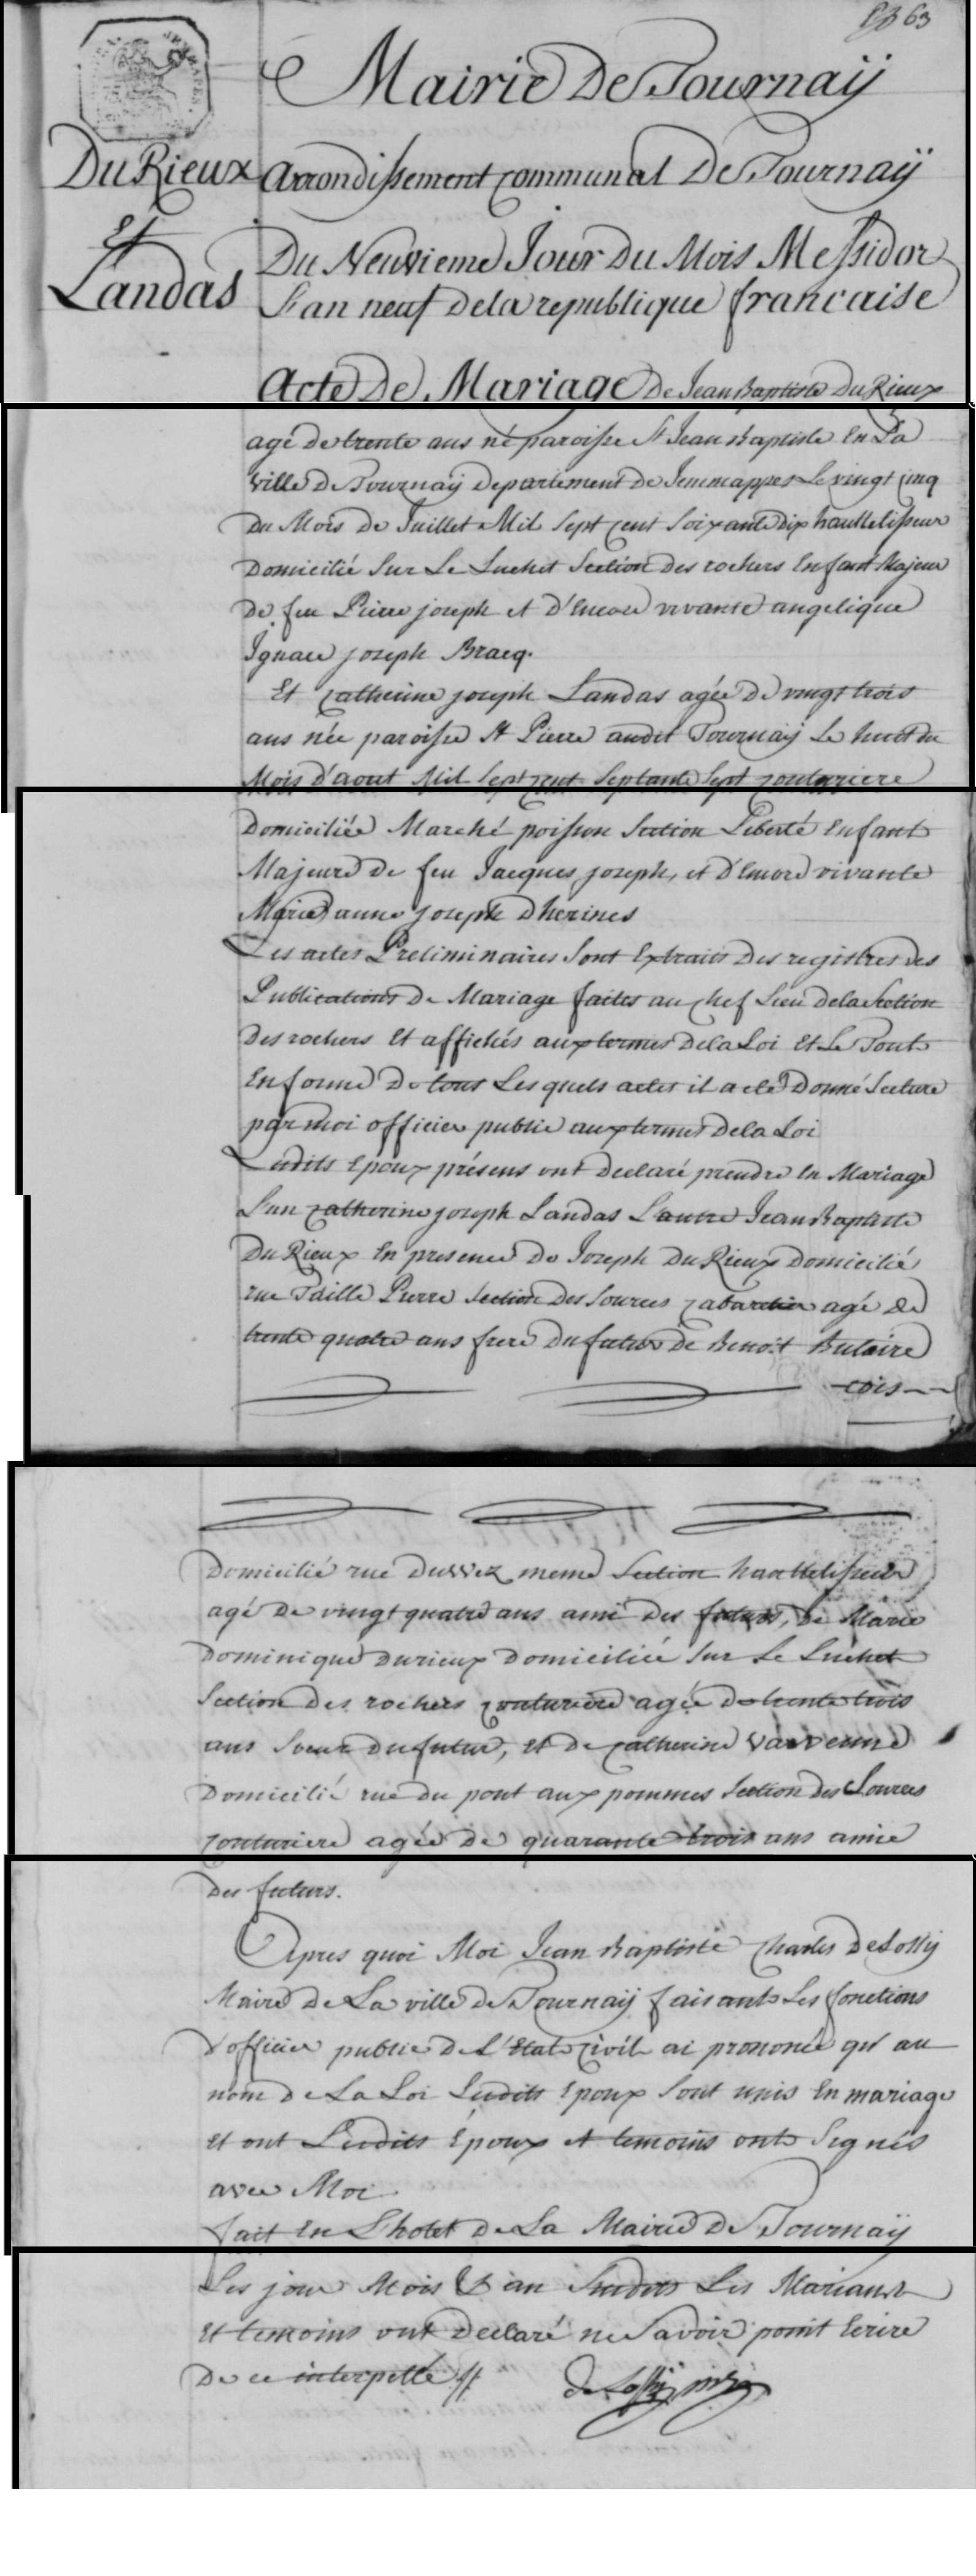 63
Mairie De Tournaÿ
DuRieux
Et
Landas
Arrondissement communal De Tournaÿ
Du Neuvieme Jour Du Mois Messidor
L'an neuf De la republique francaise
Acte De Mariage De Jean Baptiste Du Rieux
agé de trente ans né paroisse St Jean Baptiste En La
ville De Tournaÿ Departement De Jemmappes Le vingt cinq
Du Mois De Juillet Mil Sept cent Soixante dix hauttelisseur
Domicilié Sur Le Luchet Section des rochers Enfant Majeur
De feu Pierre joseph et D'Encore vivante angelique
Ignace joseph Bracq.
Et catherine joseph Landas agée De vingt trois
ans née paroisse St Pierre audit Tournaÿ Le huit du
Mois D'aout Mil Sept cent Septante Sept couturiere
Domiciliée Marché poisson Section Liberté Enfant
Majeure De feu Jacques joseph, et D'Encore vivante
Marie anne joseph Dherines
Les actes Preliminaires Sont Extraits Des registres des
Publications De Mariage faites au chef Lieu de la Section
Des rochers Et affichés aux termes De la Loi Et Le Tout
En forme De tous Les quels actes il a eté Donné Lecture
par moi officier public aux termes De la Loi
Lesdits Epoux présens ont Declaré prendre En Mariage
L'un catherine joseph Landas L'autre Jean Baptiste
Du Rieux En presence De Joseph Du Rieux Domicilié
rue Paille Pierre Section Des Sources cabaretier agé De
trente quatre ans frere Du futur de Benoit Butaire
Domicilié rue Duwez meme Section hauttelisseur
agé De vingt quatre ans ami Des futurs, De Marie
Dominique Durieux Domiciliée Sur Le Luchet
Section Des rochers couturiere agée De trente trois
ans Soeur Du futur, et De catherine Varvenne
Domicilié rue Du pont aux pommes Section Des Sources
couturiere agée De quarante trois ans amie
Des futurs.
Apres quoi Moi Jean Baptiste Charles DeLossÿ
Maire De La ville De Tournaÿ faisant Les fonctions
D'officier public De L'Etat civil ai prononcé qu'au
nom De La Loi Lesdits Epoux Sont unis En mariage
Et ont Lesdits Epoux et temoins ont Signés
avec Moi
fait En L'hotel De La Mairie De Tournaÿ
Les jour Mois Et an Susdits Les Mariants
Et temoins ont Declaré ne Savoir point Ecrire
De ce interpellé
de Lossÿ